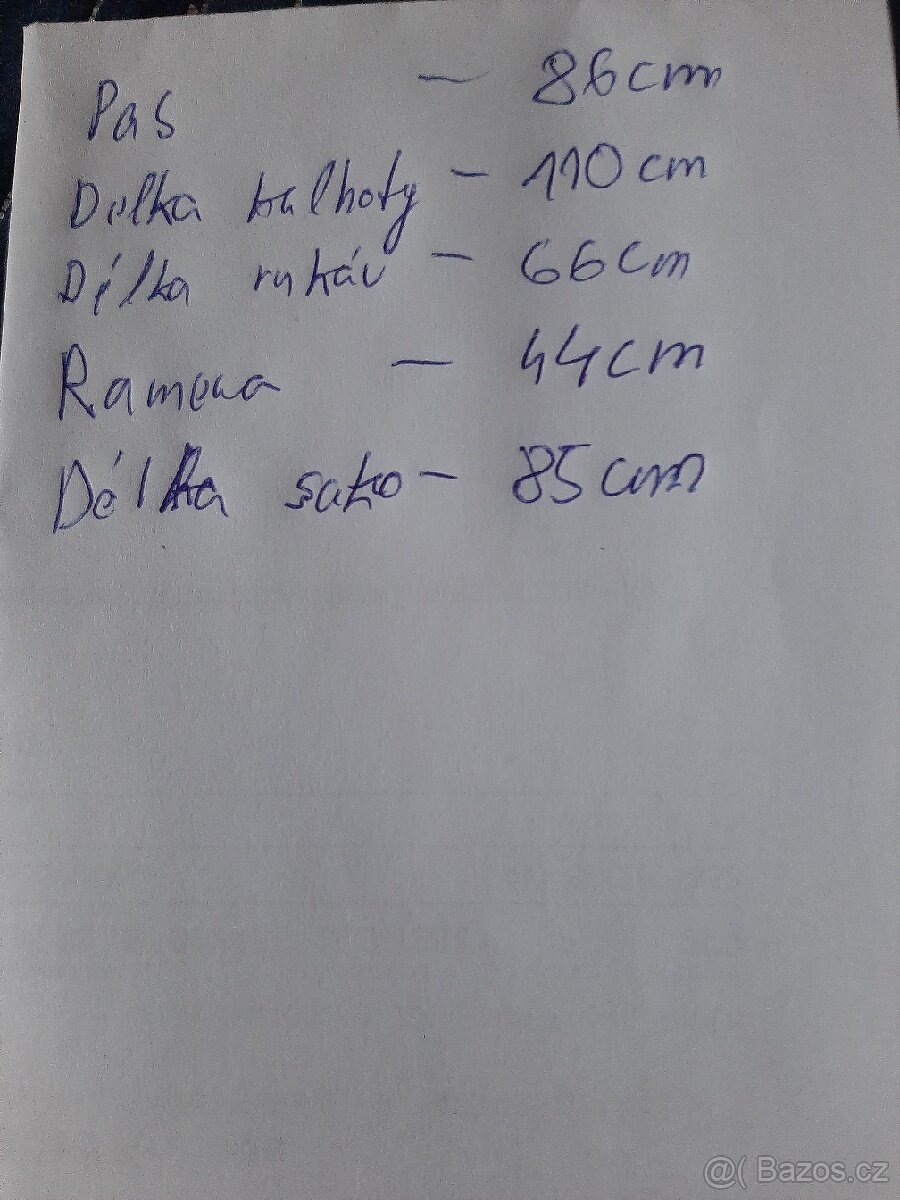 Pas - 86cm
Delka kalhoty - 110cm
Délka rukáv - 66cm
Ramena - 44cm
Délka sako - 85cm
@( Bazos.cz